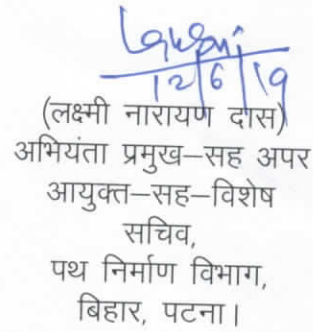 12/6/19
(लक्ष्मी नारायण दास)
अभियंता प्रमुख–सह अपर
आयुक्त–सह–विशेष
सचिव,
पथ निर्माण विभाग,
बिहार, पटना।